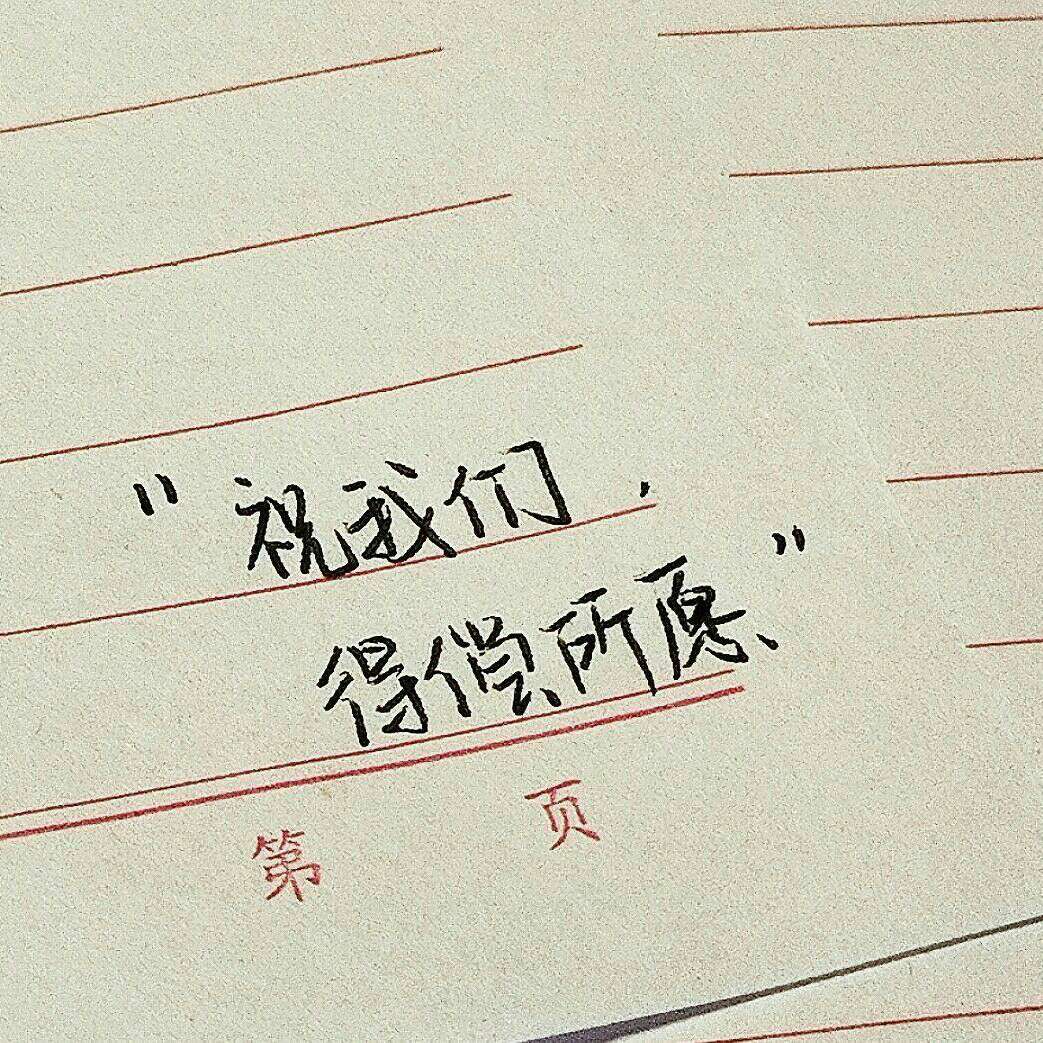 "祝我们,
得偿所愿、"
第 页